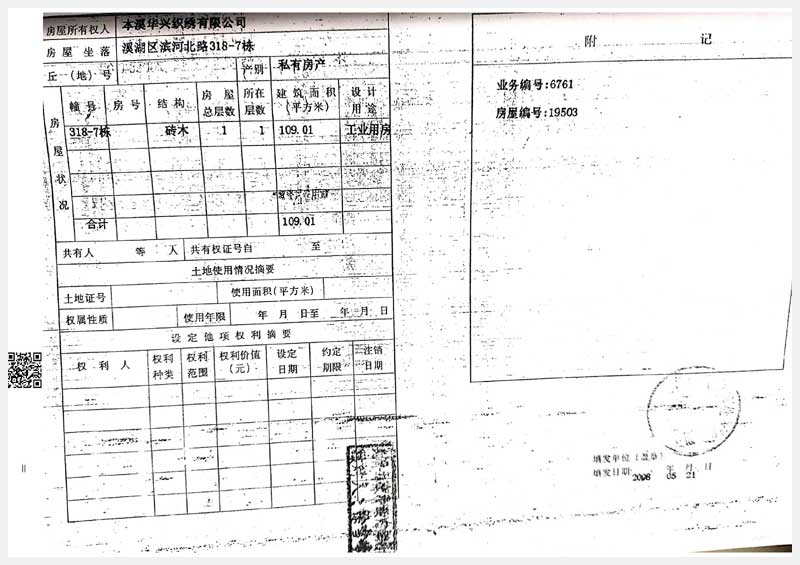 房屋所有权人 本溪华兴织绣有限公司
房屋坐落 溪湖区滨河北路318-7栋
丘(地)号 产别 私有房产
房屋状况
幢号 房号 结构 房屋总层数 所在层数 建筑面积(平方米) 设计用途
318-7栋 砖木 1 1 109.01 工业用房
合计 109.01
共有人 等 人 共有权证号自 至
土地使用情况摘要
土地证号 使用面积(平方米)
权属性质 使用年限 年 月 日至 年 月 日
设定他项权利摘要
权利人 权利种类 权利范围 权利价值(元) 设定日期 约定期限 注销日期
附 记
业务编号:6761
房屋编号:19503
填发单位(盖章)
填发日期: 年 月 日
2008 05 21